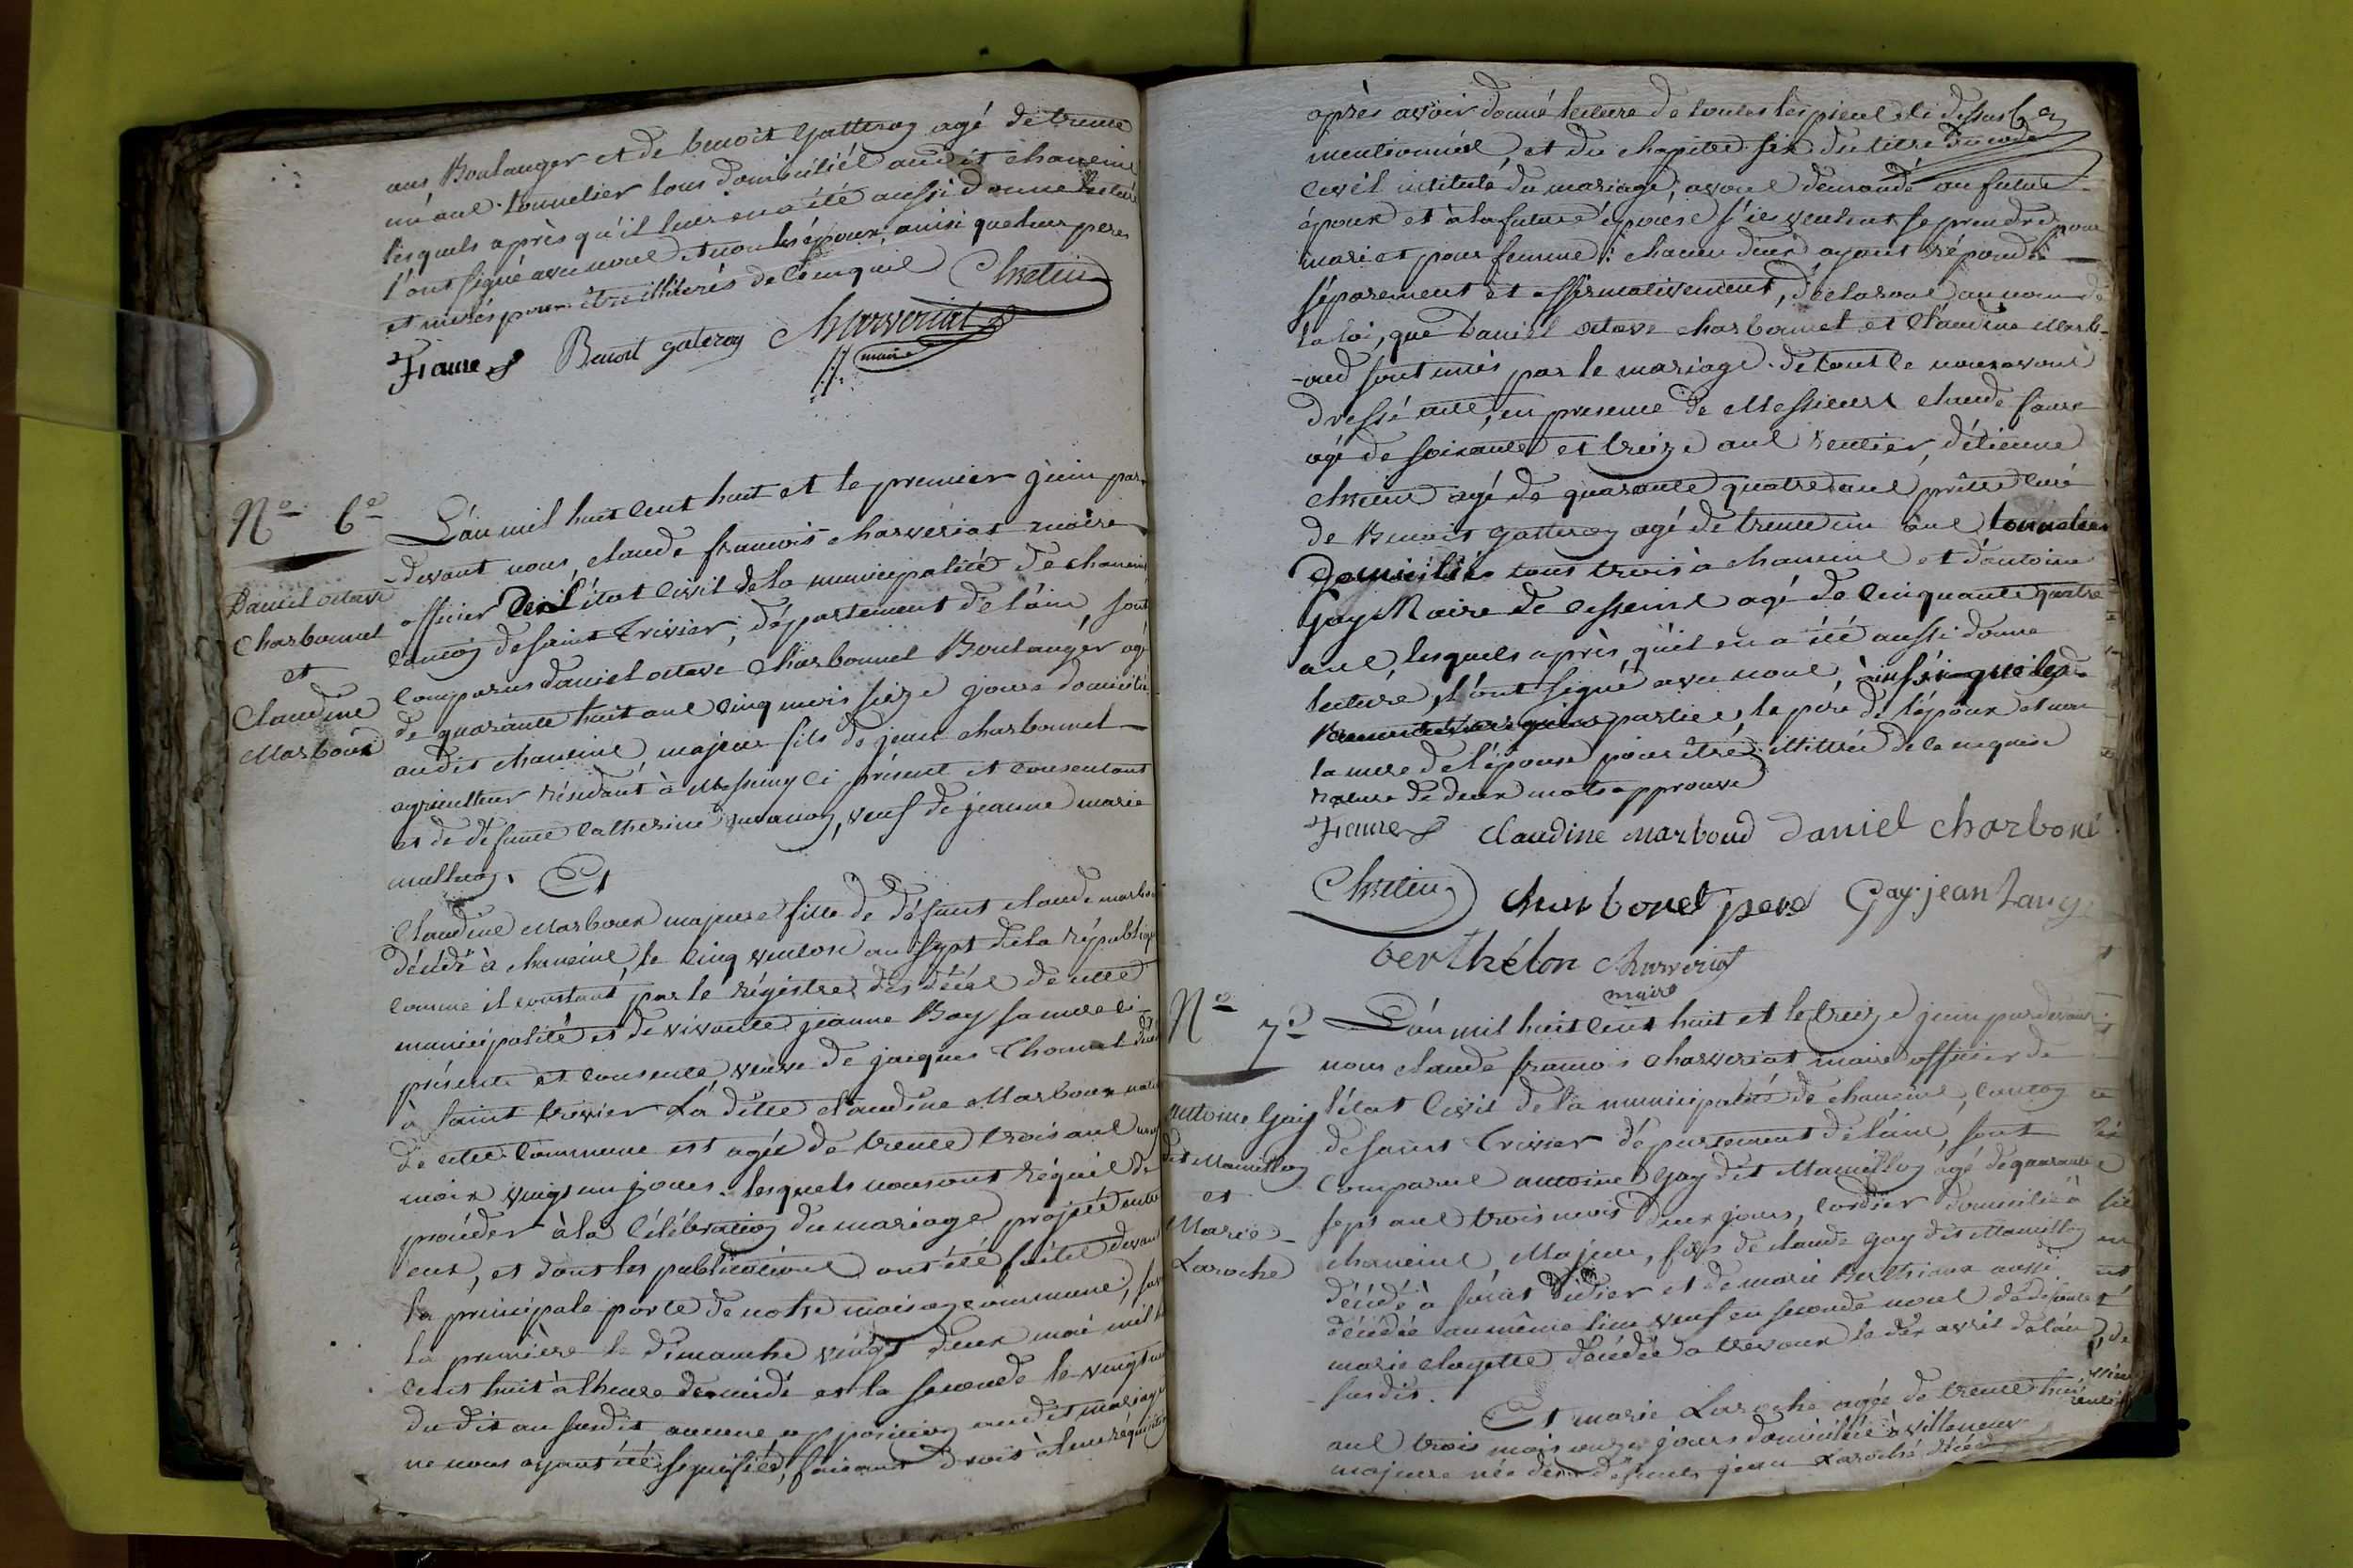 ans Boulanger et de benoit Gatteroy agé de trente
un ans tonnelier tous domiciliés audit chaneins
lesquels après qu'il leur en a été aussi donné lecture
l'ont signé avec nous et non les époux, ainsi que leurs peres
et meres pour être illiterés de ce enquis Chretin
Benoit gateroy Charveriat
maire
N° 6e
Daniel octave
Charbonnet
et
Claudine
Marboux
L'an mil huit cent huit et le premier juin par
-devant nous, claude françois charveriat maire
officier de l'état civil de la municipalité de chaneins
canton de saint Trivier, département de l'ain, sont
comparus daniel octave Charbonnet Boulanger agé
de quarante huit ans cinq mois seize jours domicilié
audit chaneins, majeur fils de jean charbonnet
agriculteur résidant à Messimy ci présent et consentant
et de défunte Catherine, veuf de jeanne marie
. Et
Claudine Marboux majeure fille de défunt claude marboux
décédé à chaneins le cinq ventose an sept de la république
comme il constant par le régistre des décés de cette
municipalité et de vivante jeanne Bay sa mere ci-
présente et consente, veuve de jacques décédé
à saint trivier La ditte claudine Marboux native
de cette commune est agée de trente trois ans
mois vingt un jours. lesquels nous ont réquis de
procéder à la célébration du mariage projeté entre
eux, et dont les publications ont été faites devant
la principale porte de notre maison commune, savoir
la première le dimanche vingt deux mai mil huit
cent huit à l'heure de midi et la seconde le vingt neuf
du dit an susdit aucune opposition audit mariage
ne nous ayant été signifiée, faisant droit à leur réquisition
après avoir donné lecture de toutes les pieces ci dessus
mentionnées, et du chapitre six du titre du code
civil intitulé du mariage, avons demandé au futur
époux et à la future épouse s'ils veulent se prendre pour
mari et pour femme : chacun d'eux ayant répondu
séparement et affirmativement, déclarons au nom de
la loi, que Daniel octave charbonnet et Claudine Marb-
-oud sont unis par le mariage. de tout ce nous avons
dressé acte, en presence de Messieurs claude
agé de soixante et treize ans rentier, d'étienne
Chretin agé de quarante quatre ans prêtre curé
de Benoit Gatteroy agé de trente un ans tonnelier
domiciliés tous trois à chaneins et d'antoine
Gay Maire de cesseins agé de cinquante quatre
ans, lesquels après qu'il en a été aussi donné
lecture, l'ont signé avec nous, ainsi que les
parties, le père de l'époux et non
la mere de l'épouse pour être illittrée de ce enquise
rature de deux mots approuvé
claudine marboud daniel charboné
Chretin charbonet pere Gay jean
berthélon Charveriat
maire
N° 7e
antoine Gay
dit Mamillon
et
Marie
Laroche
L'an mil huit cent huit et le treize juin par devant
nous claude françois charveriat, maire officier de
l'état civil de la municipalité de chaneins, canton
de saint Trivier département de l'ain, sont
comparus antoine Gay dit Mamillon agé de quarante
sept ans trois mois deux jours, cordier domicilié à
chaneins, Majeur, fils de claude gay dit Mamillon
décédé à saint didier et de marie Berthiaux aussi
décédée au même lieu veuf en seconde nous de défunte
marie clayette décédée a trevoux le dix avril de l'an
susdit.
Et marie Laroche agée de trente huit
ans trois mois onze jours domiciliée à villeneuve
majeure née des défunts jean Laroche décédé